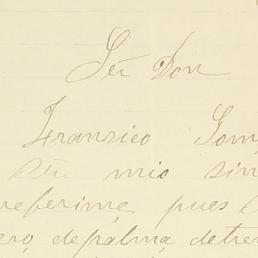 Sr Don
Fransico Gom
Sr mio sin
referime, pues
de palma, detre